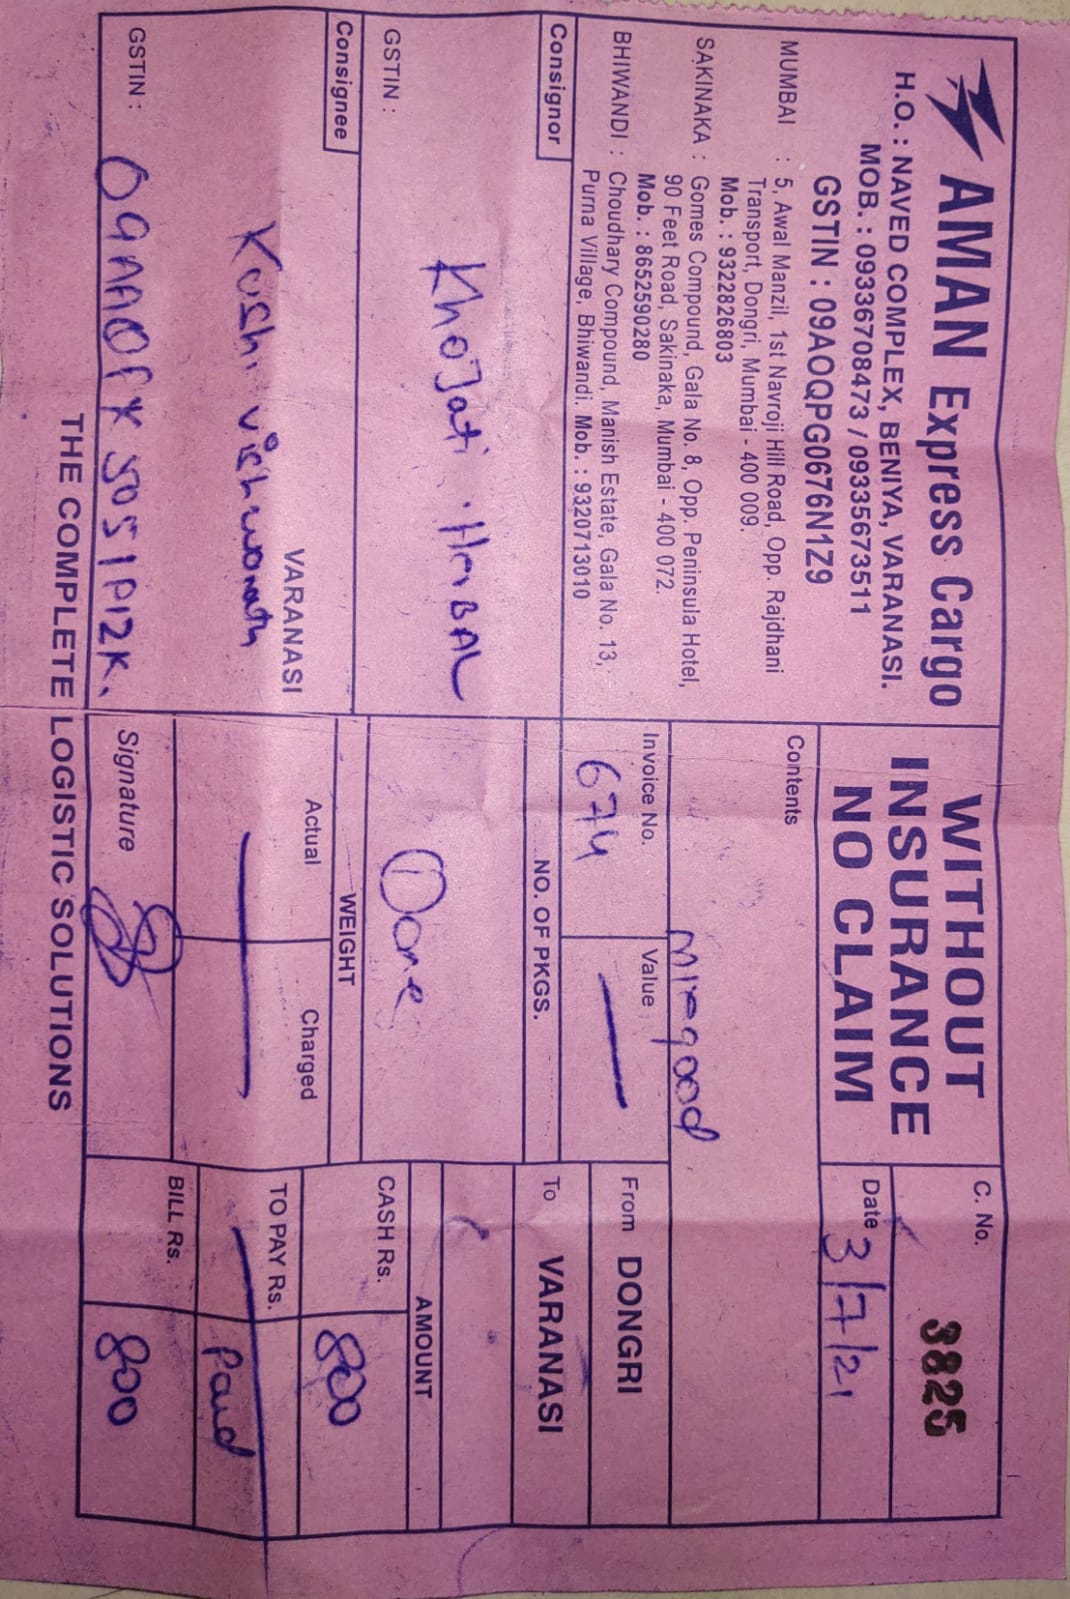 AMAN Express Cargo
H.O. : NAVED COMPLEX, BENIYA, VARANASI.
MOB. : 09336708473 / 09335673511
GSTIN : 09AOQPG0676N1Z9
MUMBAI : 5, Awal Manzil, 1st Navroji Hill Road, Opp. Rajdhani
Transport, Dongri, Mumbai - 400 009.
Mob. : 9322826803
SAKINAKA : Gomes Compound, Gala No. 8, Opp. Peninsula Hotel,
90 Feet Road, Sakinaka, Mumbai - 400 072.
Mob. : 8652590280
BHIWANDI : Choudhary Compound, Manish Estate, Gala No. 13,
Purna Village, Bhiwandi. Mob. : 9320713010
WITHOUT
INSURANCE
NO CLAIM
C. No. 3825
Date 3/7/21
Contents
Mixgood
Invoice No. 674
Value
From DONGRI
To VARANASI
Consignor
Khojati HerBAL
GSTIN :
NO. OF PKGS.
① One
AMOUNT
CASH Rs. 800
Consignee
Kashi vishwanath
VARANASI
WEIGHT
Actual
Charged
TO PAY Rs. Paid
GSTIN :
Signature
BILL Rs. 800
THE COMPLETE LOGISTIC SOLUTIONS